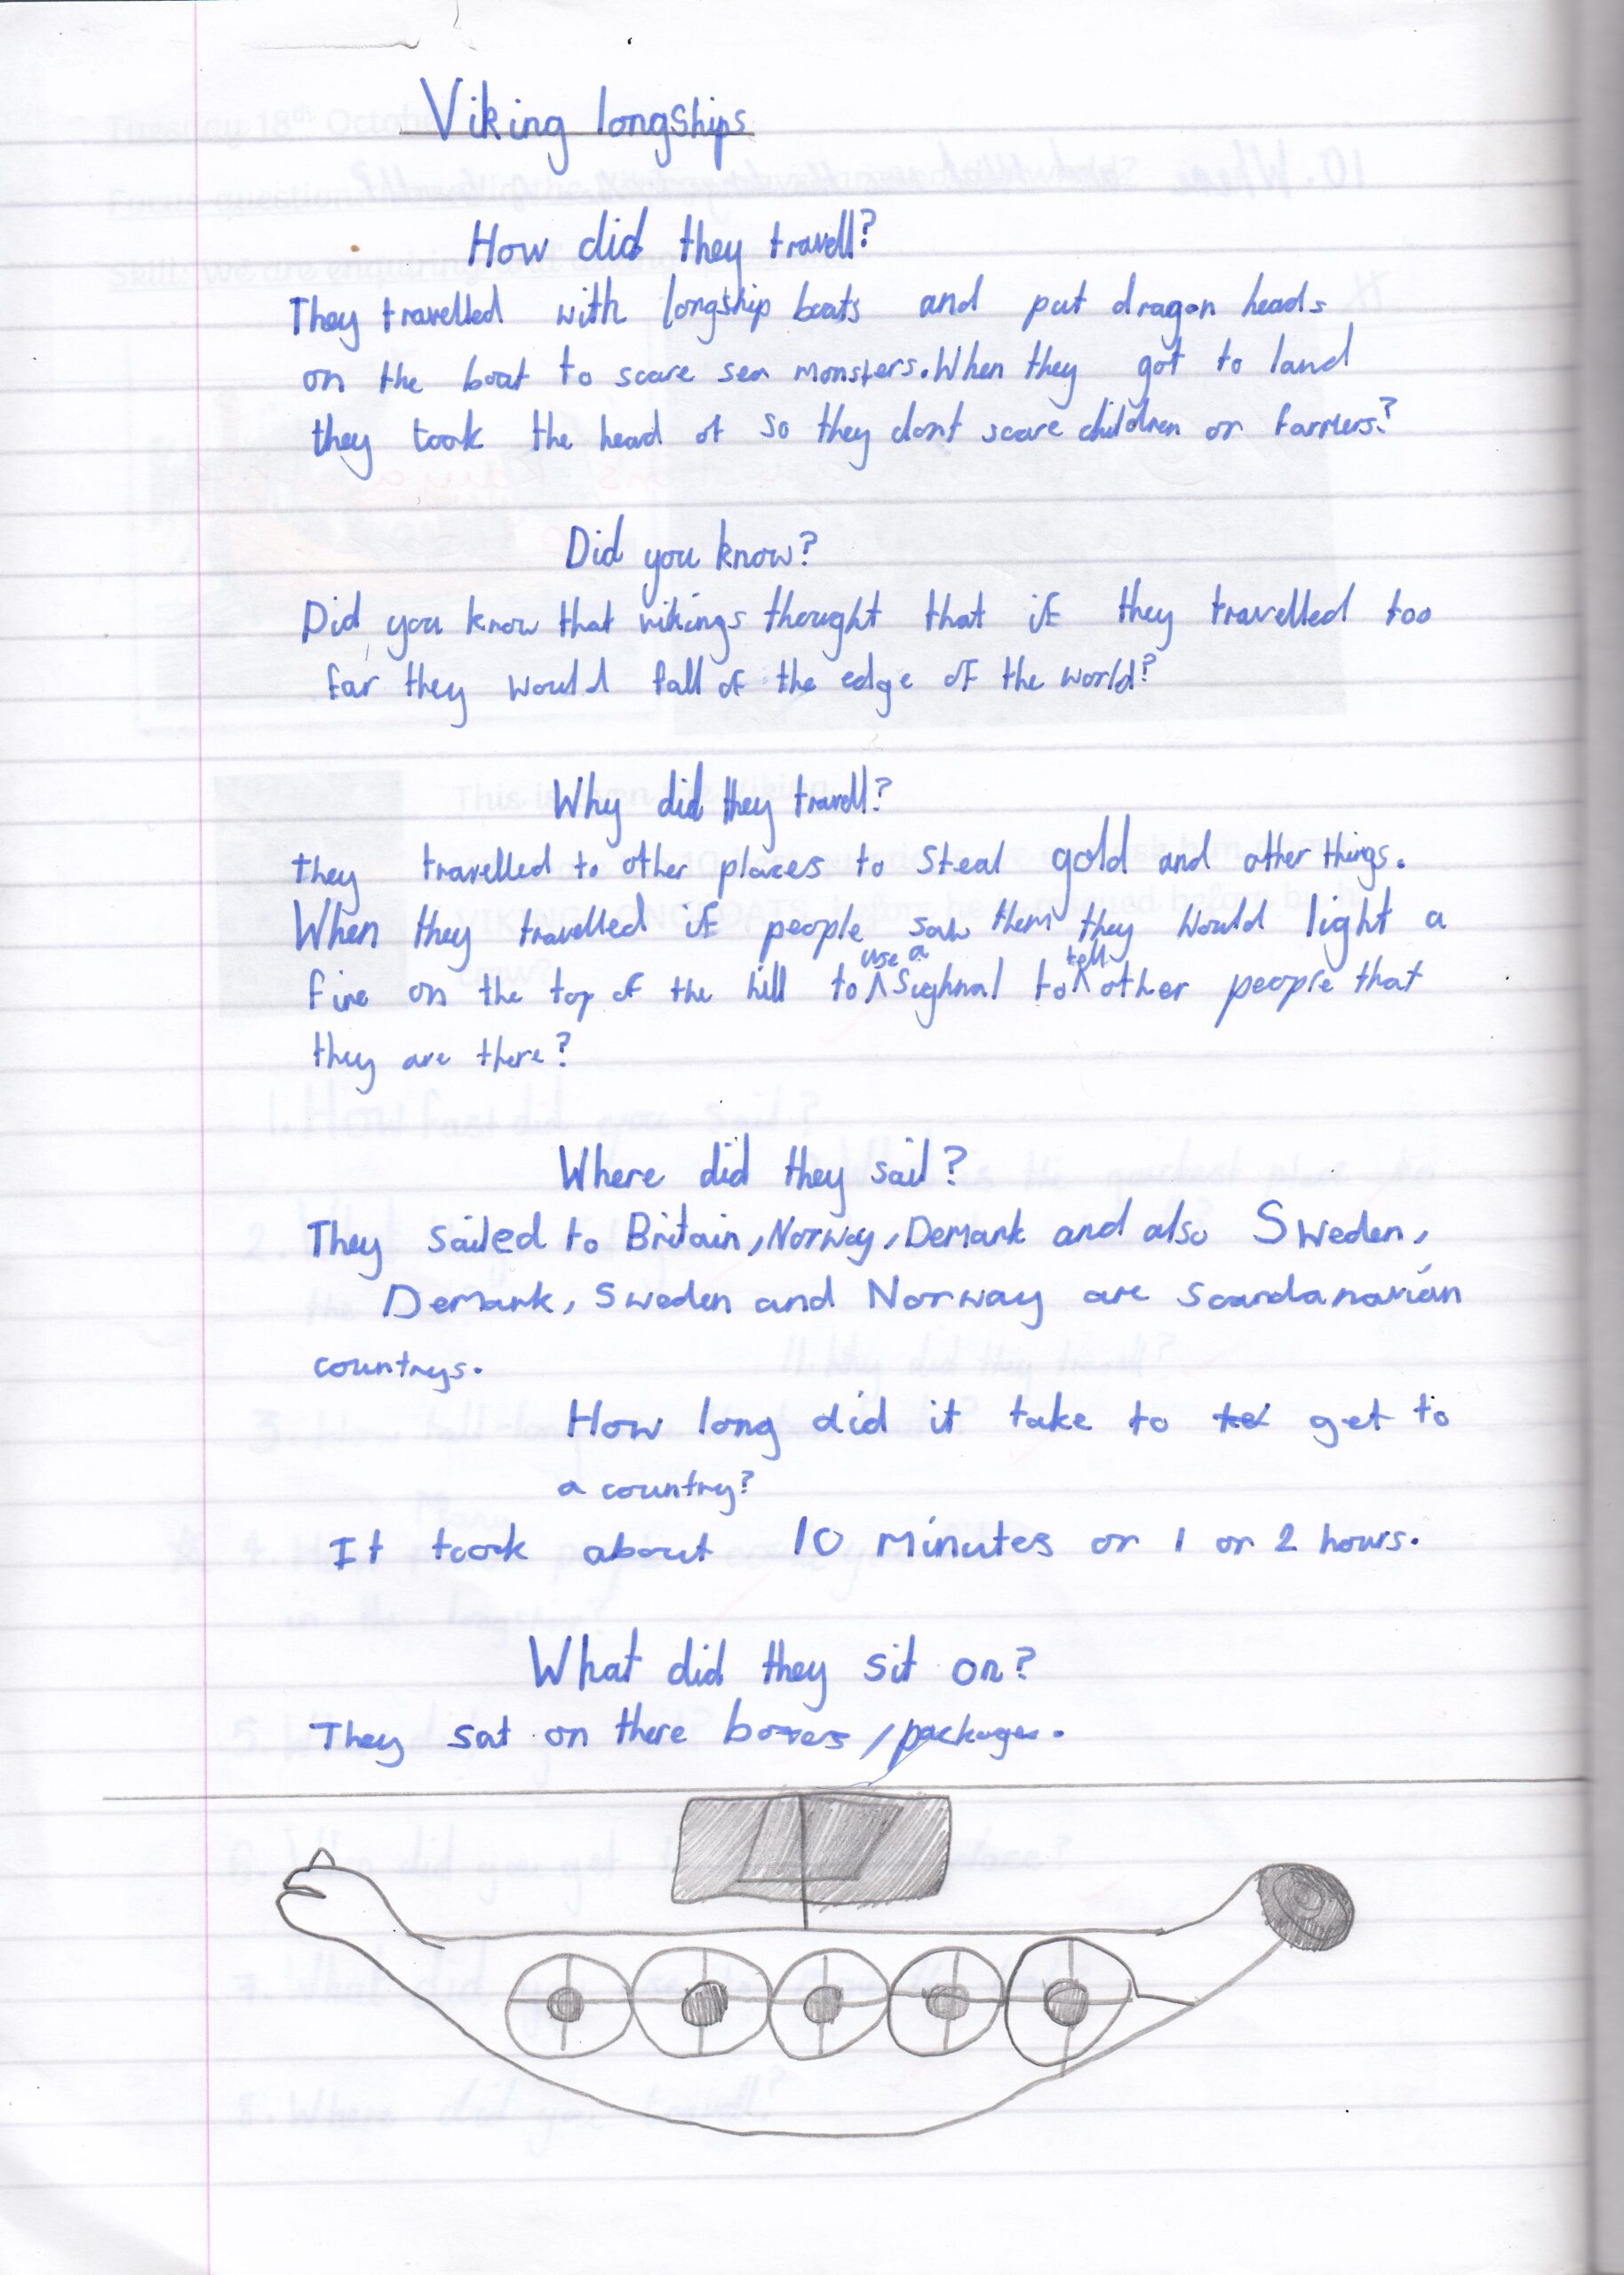 Viking longships
How did they travell?
They travelled with longship boats and put dragon heads
on the boat to scare sea monsters. When they got to land
they took the head of so they dont scare children or farmers?
Did you know?
Did you know that vikings thought that if they travelled too
far they would fall of the edge of the world?
Why did they travell?
they travelled to other places to steal gold and other things.
When they travelled if people saw them they would light a
fire on the top of the hill to use a sighnal to tell other people that
they are there?
Where did they sail?
They sailed to Britain, Norway, Demark and also Sweden,
Demark, Sweden and Norway are scandanavian
countrys.
How long did it take to get to
a country?
It took about 10 minutes or 1 or 2 hours.
What did they sit on?
They sat on there boxes / packages.